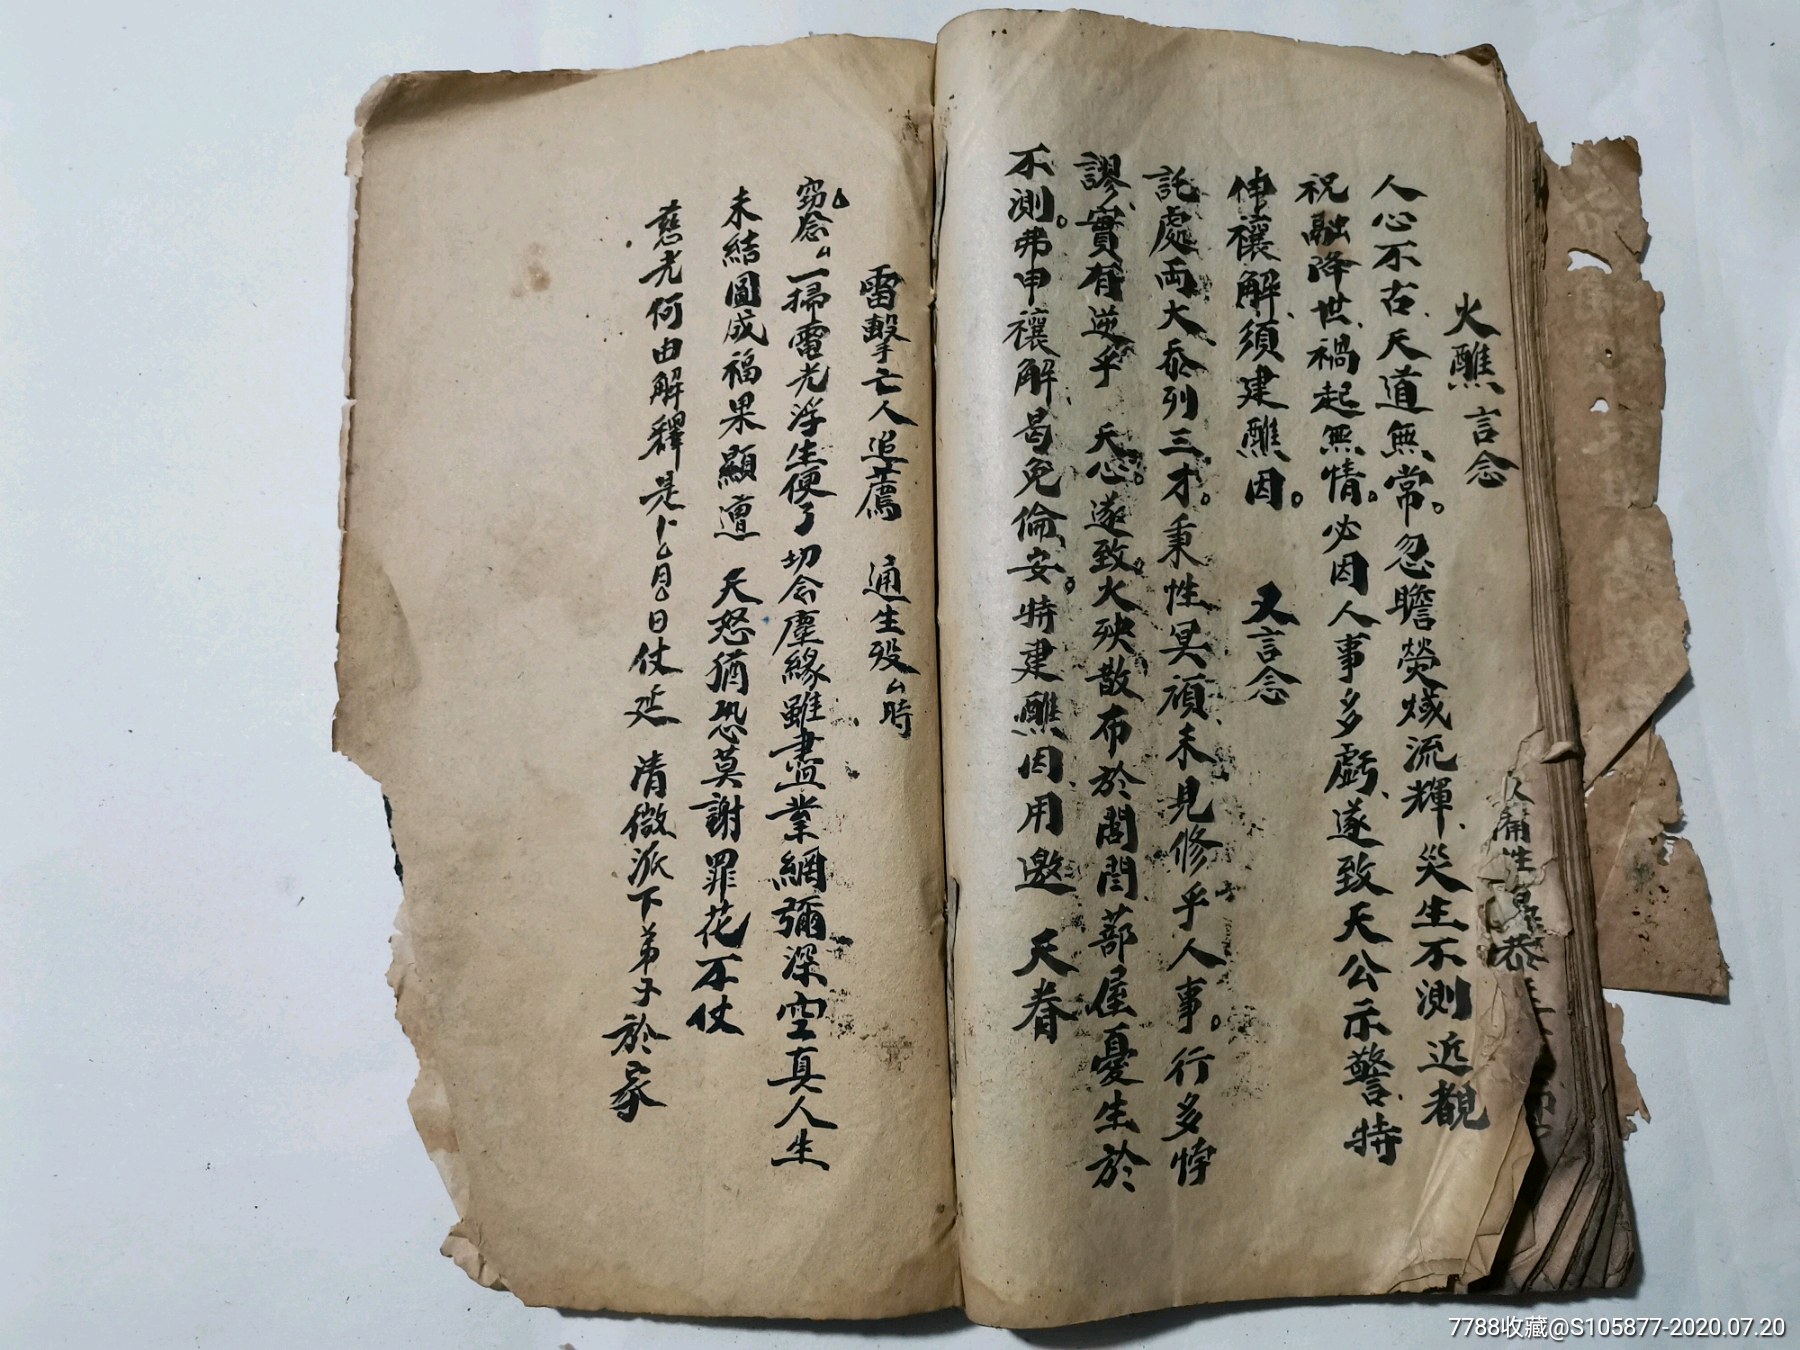 火醮 言念
人心不古天道無常。忽瞻熒煢流輝災生不測近覩
祝融降世禍起無情。必因人事多虧遂致天公示警特
伸禳解須建醮因。 又言念
託處両大忝列三才。秉性冥頑未見修乎人事。行多悖
謬實有逆乎 天心。遂致火殃散布於閭閻蔀屋憂生於
不測。弗申禳解曷免倫安。特建醮因用邀 天眷
雷擊亡人追薦 通生歿厶時
窃念厶一掃電光浮生便了切念塵緣雖盡業網彌深空真人生
未結圓成福果顯遭 天怒猶恐莫謝罪花不仗
慈光何由解釋是卜厶月厶日仗延 清微派下弟子於家
7788收藏@S105877-2020.07.20